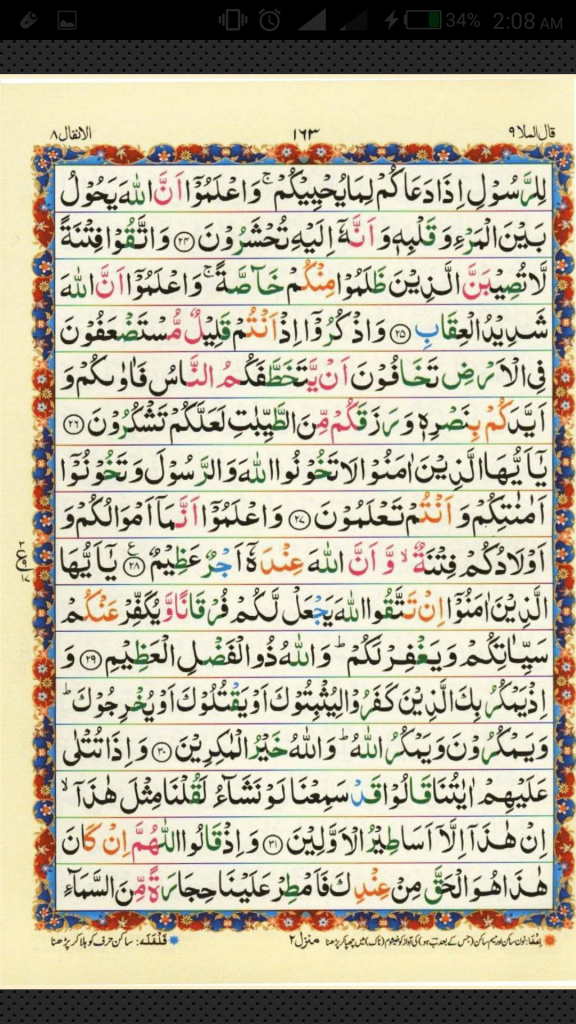 34% 2:08 AM
قال الملا ٩ ١٦٣ الانفال ٨
لِلرَّسُوْلِ اِذَا دَعَاكُمْ لِمَا يُحْيِيْكُمْ ۚ وَاعْلَمُوْۤا اَنَّ اللّٰهَ يَحُوْلُ
بَيْنَ الْمَرْءِ وَقَلْبِهٖ وَاَنَّهٗۤ اِلَيْهِ تُحْشَرُوْنَ ﴿۲۴﴾ وَاتَّقُوْا فِتْنَةً
لَّا تُصِيْبَنَّ الَّذِيْنَ ظَلَمُوْا مِنْكُمْ خَآصَّةً ۚ وَاعْلَمُوْۤا اَنَّ اللّٰهَ
شَدِيْدُ الْعِقَابِ ﴿۲۵﴾ وَاذْكُرُوْۤا اِذْ اَنْتُمْ قَلِيْلٌ مُّسْتَضْعَفُوْنَ
فِى الْاَرْضِ تَخَافُوْنَ اَنْ يَّتَخَطَّفَكُمُ النَّاسُ فَاٰوٰىكُمْ وَ
اَيَّدَكُمْ بِنَصْرِهٖ وَرَزَقَكُمْ مِّنَ الطَّيِّبٰتِ لَعَلَّكُمْ تَشْكُرُوْنَ ﴿۲۶﴾
يٰۤاَيُّهَا الَّذِيْنَ اٰمَنُوْا لَا تَخُوْنُوا اللّٰهَ وَالرَّسُوْلَ وَتَخُوْنُوْۤا
اَمٰنٰتِكُمْ وَاَنْتُمْ تَعْلَمُوْنَ ﴿۲۷﴾ وَاعْلَمُوْۤا اَنَّمَاۤ اَمْوَالُكُمْ وَ
اَوْلَادُكُمْ فِتْنَةٌ ۙ وَّاَنَّ اللّٰهَ عِنْدَهٗۤ اَجْرٌ عَظِيْمٌ ﴿۲۸﴾ ع يٰۤاَيُّهَا
الَّذِيْنَ اٰمَنُوْۤا اِنْ تَتَّقُوا اللّٰهَ يَجْعَلْ لَّكُمْ فُرْقَانًا وَّيُكَفِّرْ عَنْكُمْ
سَيِّاٰتِكُمْ وَيَغْفِرْ لَكُمْ ؕ وَاللّٰهُ ذُو الْفَضْلِ الْعَظِيْمِ ﴿۲۹﴾ وَ
اِذْ يَمْكُرُ بِكَ الَّذِيْنَ كَفَرُوْا لِيُثْبِتُوْكَ اَوْ يَقْتُلُوْكَ اَوْ يُخْرِجُوْكَ ؕ
وَيَمْكُرُوْنَ وَيَمْكُرُ اللّٰهُ ؕ وَاللّٰهُ خَيْرُ الْمٰكِرِيْنَ ﴿۳۰﴾ وَاِذَا تُتْلٰى
عَلَيْهِمْ اٰيٰتُنَا قَالُوْا قَدْ سَمِعْنَا لَوْ نَشَآءُ لَقُلْنَا مِثْلَ هٰذَاۤ ۙ
اِنْ هٰذَاۤ اِلَّاۤ اَسَاطِيْرُ الْاَوَّلِيْنَ ﴿۳۱﴾ وَاِذْ قَالُوا اللّٰهُمَّ اِنْ كَانَ
هٰذَا هُوَ الْحَقَّ مِنْ عِنْدِكَ فَاَمْطِرْ عَلَيْنَا حِجَارَةً مِّنَ السَّمَآءِ
منزل ٢
قلقله: ساکن حرف کو ہلا کر پڑھنا